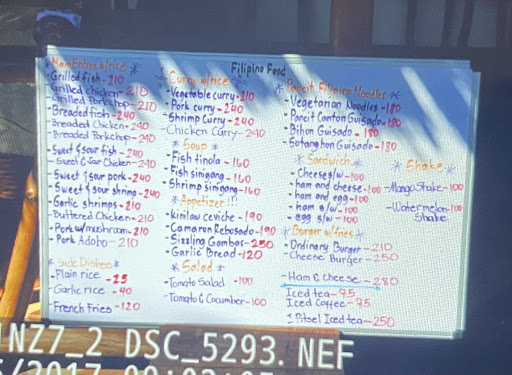 Filipino Food
*Main Entree w/rice*
-Grilled fish-210
-Grilled chicken-210
-Grilled Porkchop-210
-Breaded fish-240
-Breaded Chicken-240
-Breaded Porkchop-240
-Sweet & sour fish-240
-Sweet & Sour Chicken-240
-Sweet & sour pork-240
-Sweet & sour shrimp-240
-Garlic shrimps-210
-Buttered Chicken-210
-Pork w/mushroom-210
-Pork Adobo-210
*Side Dishes*
-Plain rice-25
-Garlic rice-40
-French Fries-120
*Curry w/rice*
-Vegetable curry-210
-Pork curry-240
-Shrimp Curry-240
-Chicken Curry-240
*Soup*
-Fish tinola-160
-Fish sinigang-160
-Shrimp sinigang-160
*Appetizer!!!
-kinilaw ceviche-190
-Camaron Rebosado-190
-Sizzling Gambas-250
-Garlic Bread-120
*Salad*
-Tomato Salad-100
-Tomato & Cucumber-100
*Pancit Filipino Noodles*
-Vegetarian Noodles-180
-Pancit Canton Guisado-180
-Bihon Guisado-180
-Sotanghon Guisado-180
*Sandwich*
-Cheese s/w-100
-ham and cheese-100
-ham and egg-100
-ham s/w-100
-egg s/w-100
*Burger w/fries*
-Ordinary Burger-210
-Cheese Burger-250
-Ham & Cheese-280
Iced tea-75
Iced Coffee-75
1 Pitsel Iced tea-250
*Shake*
-Mango Shake-100
-Watermelon-100
Shake
NZ7_2 DSC_5293.NEF